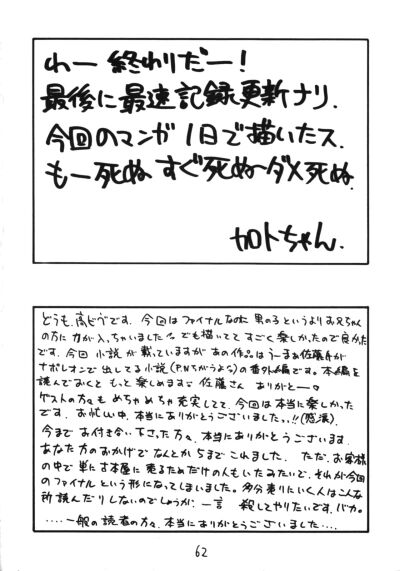 わー 終わりだー!
最後に最速記録更新ナリ.
今回のマンガ1日で描いたス.
もー死ぬ すぐ死ぬ〜ダメ死ぬ.
カトちゃん.
どうも、高ビです. 今回はファイナルなのに 男の子というよりお兄ちゃん
の方に力が入っちゃいました でも描いてて すごく楽しかったので良かった
です. 今回 小説が載っていますが あの作品は うーまぁ佐藤が
ナポレオンで出してる小説(P.Nちがうよな)の番外編です。本編を
読んでおくと もっと楽しめます 佐藤さん ありがとー
ゲストの方々も めちゃめちゃ充実してて. 今回は本当に楽しかった
です. お忙しい中. 本当にありがとうございましたっ!!(感涙).
今までお付き合い下さった方々、本当にありがとうございます.
あなた方のおかげでなんとか5までこれました. ただ. お客様
の中で単にす本屋に売るためだけの人もいたみたいで、それが今回
のファイナルという形になってしまいました。多分売りにいく人はこんな
所読んだりしないのでしょうが、一言 殺してやりたいです. バカ。
....一般の読者の方々、本当にありがとうございました....
62